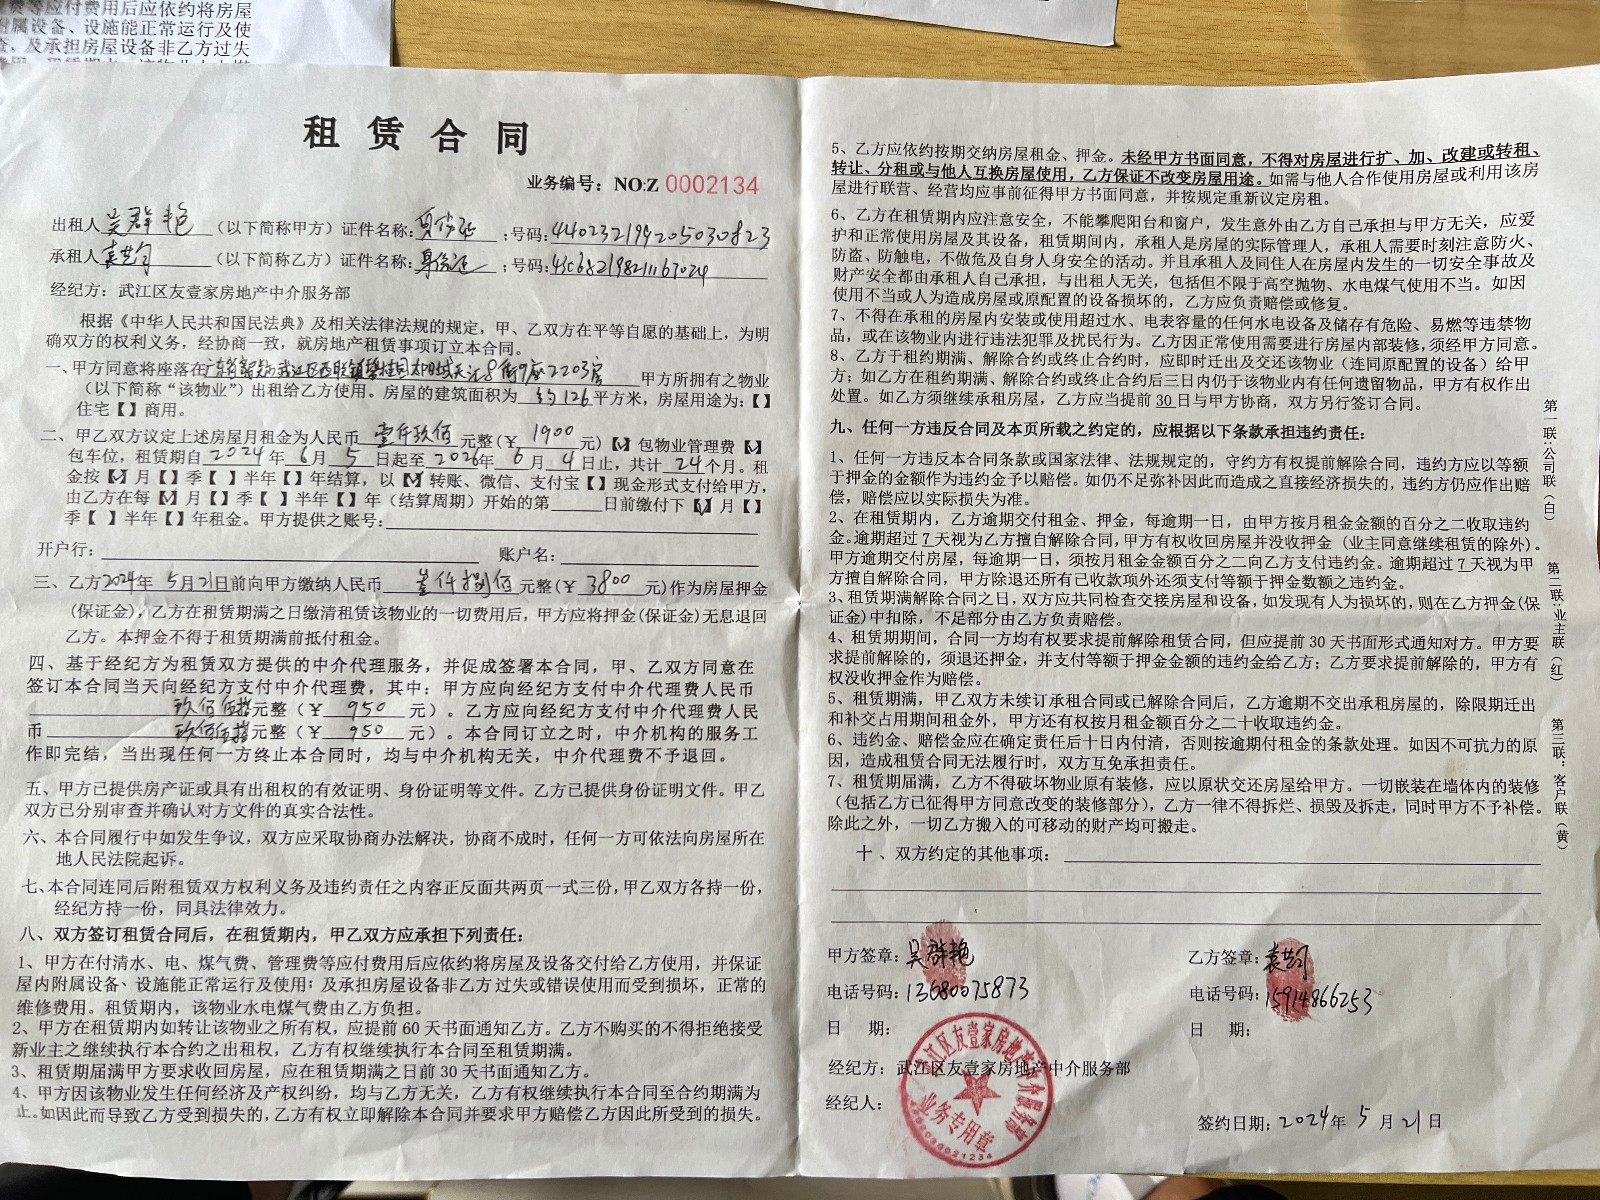 等应付费用后应依约将房屋
附属设备、设施能正常运行及使
及承担房屋设备非乙方过失
租赁合同
业务编号：NO:Z 0002134
出租人吴群艳（以下简称甲方）证件名称:身份证；号码:440232199205030823
承租人袁（以下简称乙方）证件名称:身份证；号码:
经纪方：武江区友壹家房地产中介服务部
根据《中华人民共和国民法典》及相关法律法规的规定，甲、乙双方在平等自愿的基础上，为明
确双方的权利义务，经协商一致，就房地产租赁事项订立本合同。
一、甲方同意将座落在广东省韶关市武江区西联镇碧桂园太阳城天汇8街9座2203房 甲方所拥有之物业
（以下简称“该物业”）出租给乙方使用。房屋的建筑面积为约126平方米，房屋用途为：【】
住宅【】商用。
二、甲乙双方议定上述房屋月租金为人民币壹仟玖佰元整（￥1900元）【√】包物业管理费【√】
包车位，租赁期自2024年6月5日起至2026年6月4日止，共计24个月。租
金按【√】月【】季【】半年【】年结算，以【√】转账、微信、支付宝【】现金形式支付给甲方，
由乙方在每【√】月【】季【】半年【】年（结算周期）开始的第 日前缴付下【√】月【】
季【】半年【】年租金。甲方提供之账号：
开户行： 账户名：
三、乙方2024年5月21日前向甲方缴纳人民币叁仟捌佰元整（￥3800元）作为房屋押金
(保证金)，乙方在租赁期满之日缴清租赁该物业的一切费用后，甲方应将押金(保证金)无息退回
乙方。本押金不得于租赁期满前抵付租金。
四、基于经纪方为租赁双方提供的中介代理服务，并促成签署本合同，甲、乙双方同意在
签订本合同当天向经纪方支付中介代理费，其中：甲方应向经纪方支付中介代理费人民币
玖佰伍拾元整（￥950元）。乙方应向经纪方支付中介代理费人民
币玖佰伍拾元整（￥950元）。本合同订立之时，中介机构的服务工
作即完结，当出现任何一方终止本合同时，均与中介机构无关，中介代理费不予退回。
五、甲方已提供房产证或具有出租权的有效证明、身份证明等文件。乙方已提供身份证明文件。甲乙
双方已分别审查并确认对方文件的真实合法性。
六、本合同履行中如发生争议，双方应采取协商办法解决，协商不成时，任何一方可依法向房屋所在
地人民法院起诉。
七、本合同连同后附租赁双方权利义务及违约责任之内容正反面共两页一式三份，甲乙双方各持一份，
经纪方持一份，同具法律效力。
八、双方签订租赁合同后，在租赁期内，甲乙双方应承担下列责任：
1、甲方在付清水、电、煤气费、管理费等应付费用后应依约将房屋及设备交付给乙方使用，并保证
屋内附属设备、设施能正常运行及使用；及承担房屋设备非乙方过失或错误使用而受到损坏，正常的
维修费用。租赁期内，该物业水电煤气费由乙方负担。
2、甲方在租赁期内如转让该物业之所有权，应提前60天书面通知乙方。乙方不购买的不得拒绝接受
新业主之继续执行本合约之出租权，乙方有权继续执行本合同至租赁期满。
3、租赁期届满甲方要求收回房屋，应在租赁期满之日前30天书面通知乙方。
4、甲方因该物业发生任何经济及产权纠纷，均与乙方无关，乙方有权继续执行本合同至合约期满为
止。如因此而导致乙方受到损失的，乙方有权立即解除本合同并要求甲方赔偿乙方因此所受到的损失。
5、乙方应依约按期交纳房屋租金、押金。未经甲方书面同意，不得对房屋进行扩、加、改建或转租、
转让、分租或与他人互换房屋使用，乙方保证不改变房屋用途。如需与他人合作使用房屋或利用该房
屋进行联营、经营均应事前征得甲方书面同意，并按规定重新议定房租。
6、乙方在租赁期内应注意安全，不能攀爬阳台和窗户，发生意外由乙方自己承担与甲方无关，应爱
护和正常使用房屋及其设备，租赁期间内，承租人是房屋的实际管理人，承租人需要时刻注意防火、
防盗、防触电，不做危及自身人身安全的活动。并且承租人及同住人在房屋内发生的一切安全事故及
财产安全都由承租人自己承担，与出租人无关，包括但不限于高空抛物、水电煤气使用不当。如因
使用不当或人为造成房屋或原配置的设备损坏的，乙方应负责赔偿或修复。
7、不得在承租的房屋内安装或使用超过水、电表容量的任何水电设备及储存有危险、易燃等违禁物
品，或在该物业内进行违法犯罪及扰民行为。乙方因正常使用需要进行房屋内部装修，须经甲方同意。
8、乙方于租约期满、解除合约或终止合约时，应即时迁出及交还该物业（连同原配置的设备）给甲
方；如乙方在租约期满、解除合约或终止合约后三日内仍于该物业内有任何遗留物品，甲方有权作出
处置。如乙方须继续承租房屋，乙方应当提前30日与甲方协商，双方另行签订合同。
九、任何一方违反合同及本页所载之约定的，应根据以下条款承担违约责任：
1、任何一方违反本合同条款或国家法律、法规规定的，守约方有权提前解除合同，违约方应以等额
于押金的金额作为违约金予以赔偿。如仍不足弥补因此而造成之直接经济损失的，违约方仍应作出赔
偿，赔偿应以实际损失为准。
2、在租赁期内，乙方逾期交付租金、押金，每逾期一日，由甲方按月租金金额的百分之二收取违约
金。逾期超过7天视为乙方擅自解除合同，甲方有权收回房屋并没收押金（业主同意继续租赁的除外）。
甲方逾期交付房屋，每逾期一日，须按月租金金额百分之二向乙方支付违约金。逾期超过7天视为甲
方擅自解除合同，甲方除退还所有已收款项外还须支付等额于押金数额之违约金。
3、租赁期满解除合同之日，双方应共同检查交接房屋和设备，如发现有人为损坏的，则在乙方押金(保
证金)中扣除，不足部分由乙方负责赔偿。
4、租赁期期间，合同一方均有权要求提前解除租赁合同，但应提前30天书面形式通知对方。甲方要
求提前解除的，须退还押金，并支付等额于押金金额的违约金给乙方；乙方要求提前解除的，甲方有
权没收押金作为赔偿。
5、租赁期满，甲乙双方未续订承租合同或已解除合同后，乙方逾期不交出承租房屋的，除限期迁出
和补交占用期间租金外，甲方还有权按月租金额百分之二十收取违约金。
6、违约金、赔偿金应在确定责任后十日内付清，否则按逾期付租金的条款处理。如因不可抗力的原
因，造成租赁合同无法履行时，双方互免承担责任。
7、租赁期届满，乙方不得破坏物业原有装修，应以原状交还房屋给甲方。一切嵌装在墙体内的装修
（包括乙方已征得甲方同意改变的装修部分），乙方一律不得拆烂、损毁及拆走，同时甲方不予补偿。
除此之外，一切乙方搬入的可移动的财产均可搬走。
十、双方约定的其他事项：
甲方签章：吴群艳 乙方签章：袁
电话号码：13680075873 电话号码：15914866253
日 期： 日 期：
经纪方：武江区友壹家房地产中介服务部
经纪人：
签约日期：2024年5月21日
武江区友壹家房地产中介服务部
业务专用章
第一联：公司联（白）
第二联：业主联（红）
第三联：客户联（黄）